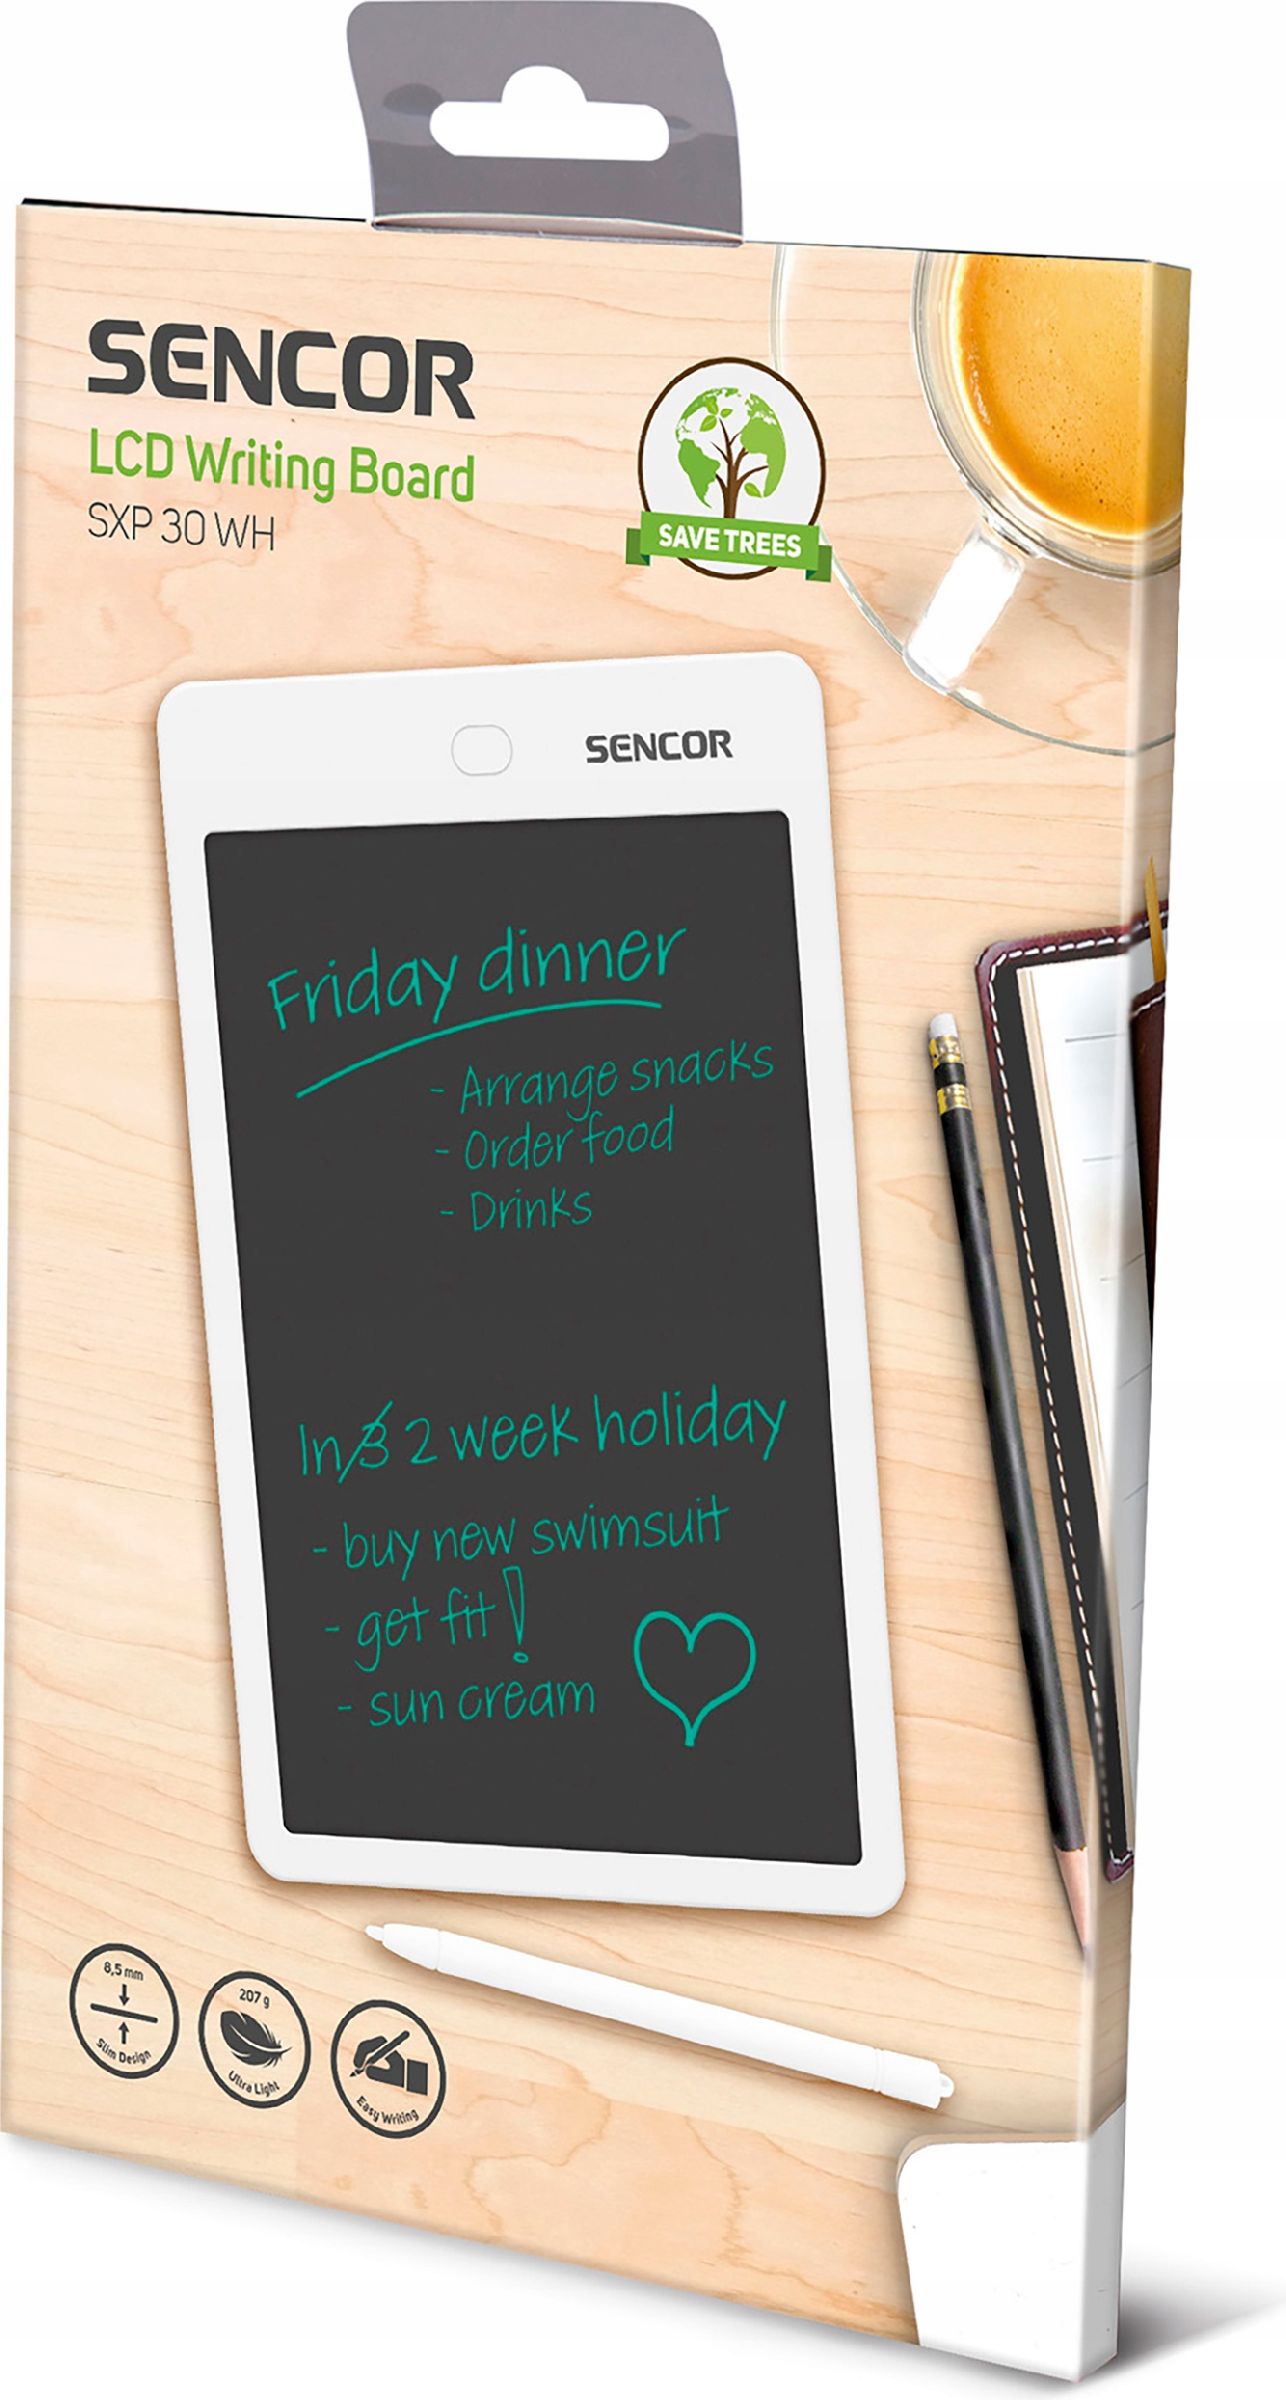 SENCOR
LCD Writing Board
SXP 30 WH
SAVE TREES
SENCOR
Friday dinner
- Arrange snacks
- Order food
- Drinks
In 3 2 week holiday
- buy new swimsuit
- get fit!
- sun cream
8,5 mm
Slim Design
207 g
Ultra Light
Easy Writing